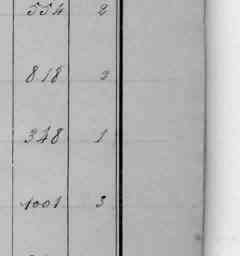 554 2
818 2
348 1
1001 3